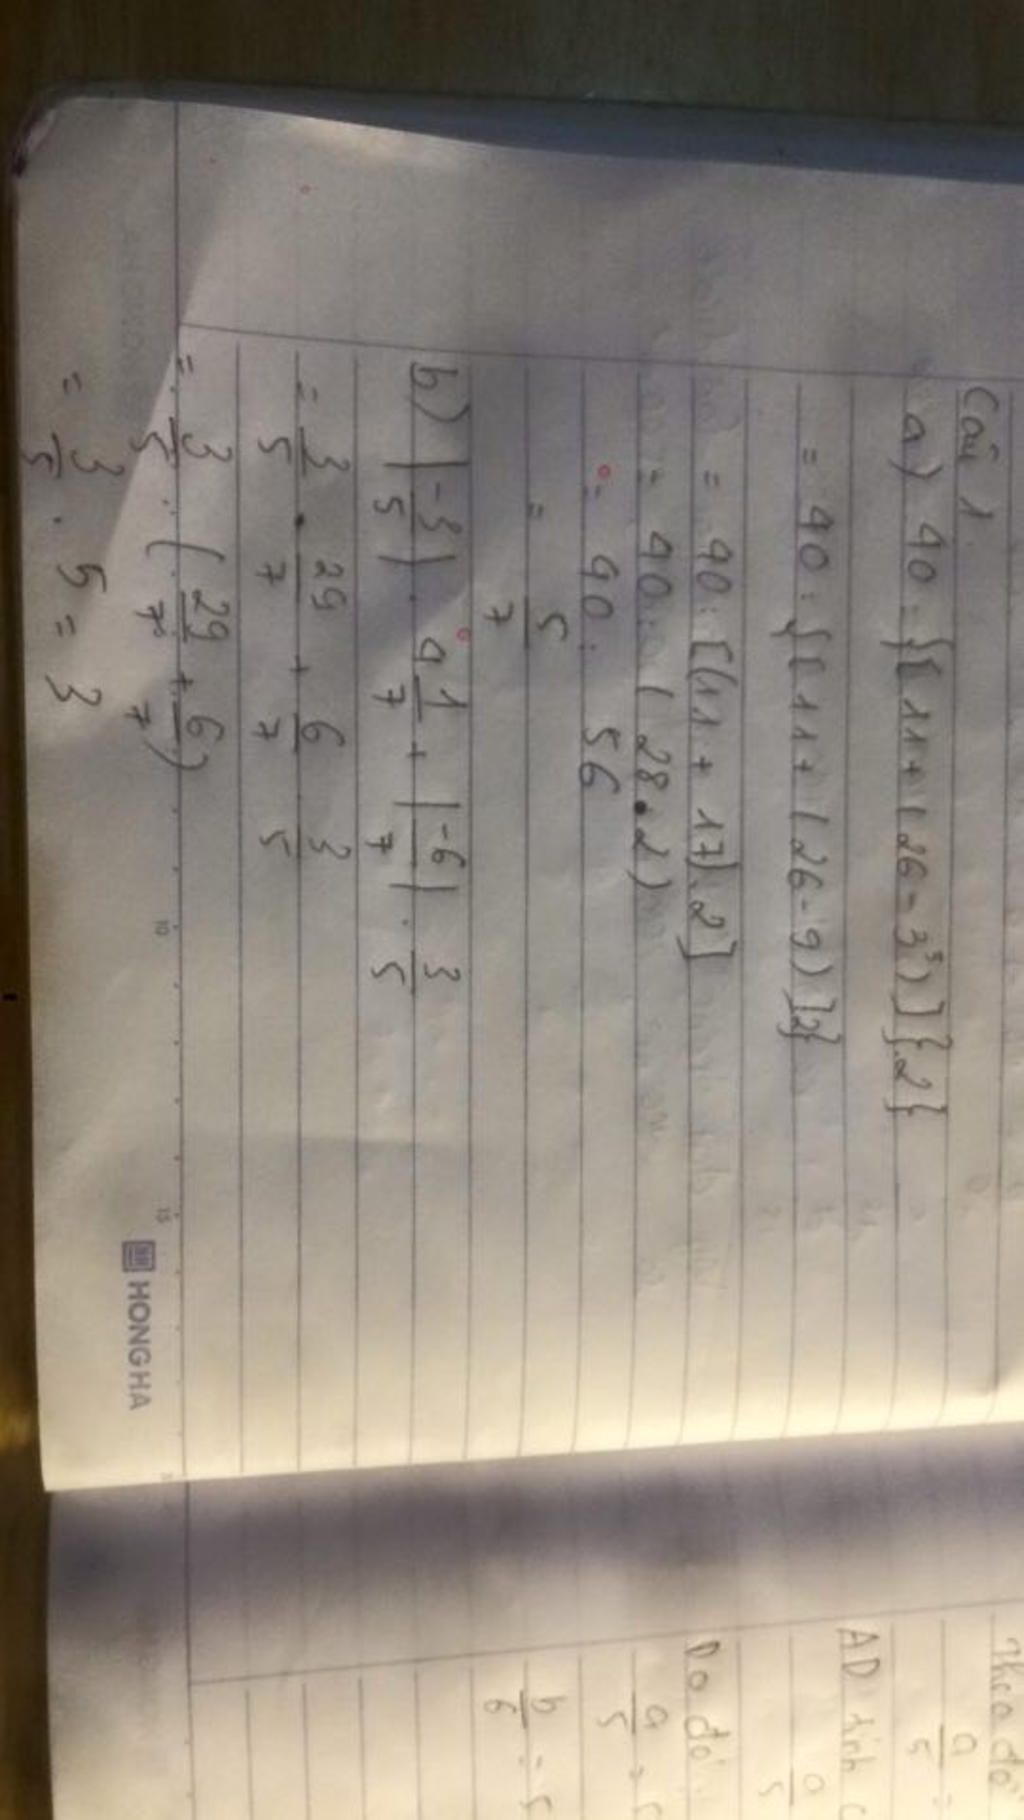 Câu 1.
a) 40 : {[11 + (26 - 3³)]}.2}
= 40 : {[11 + (26 - 9)]2}
= 40 : [(11 + 17).2]
= 40 : (28.2)
= 40 : 56
= 5/7
b) |-3/5| . 4 1/7 + |-6/7| . 3/5
= 3/5 . 29/7 + 6/7 3/5
= 3/5 . (29/7 + 6/7)
= 3/5 . 5 = 3
10
15
HONG HA
a/5 =
AD tính
a/5
Do đó
a/5 = 5
b/6 = 5